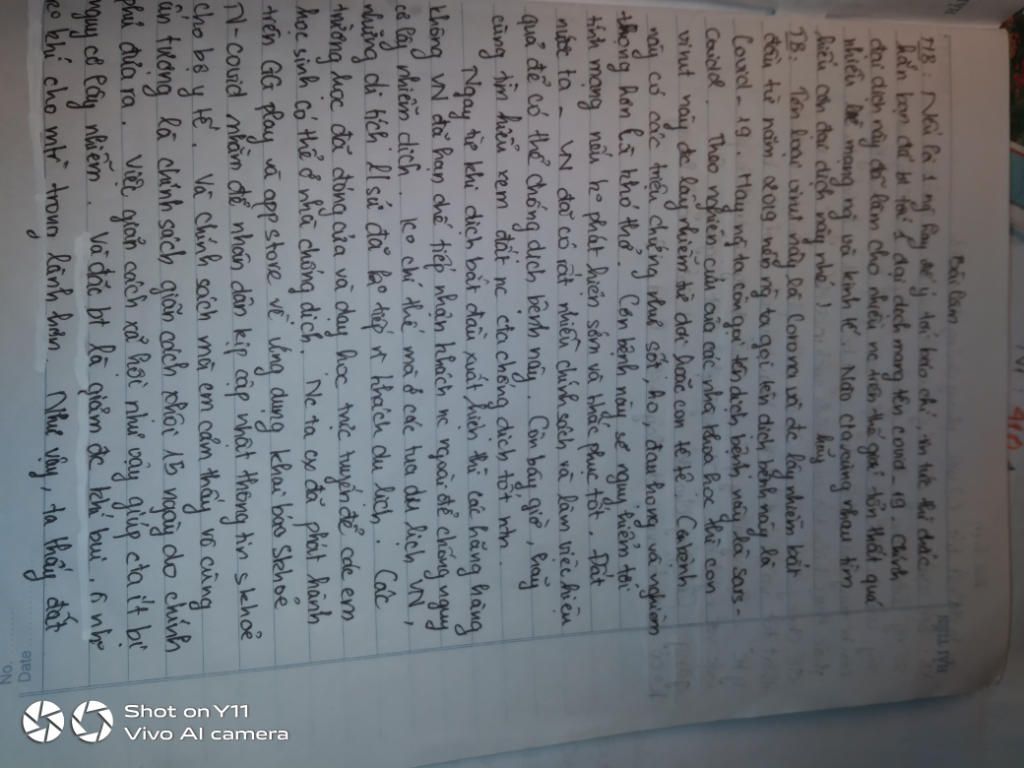 Bài làm
MB: Nếu là 1 ng hay để ý tới báo chí, tin tức thì chắc
hẳn bạn đã bt tới 1 đại dịch mang tên covid-19. Chính
đại dịch này đã làm cho nhiều nc trên thế giới tổn thất quá
nhiều về mạng ng và kinh tế. Nào cta cùng nhau tìm
hiểu con đại dịch này nhé!
TB: Tên loài virut này là Corona và đc lây nhiễm bắt
đầu từ năm 2019 nên ng ta gọi tên dịch bệnh này là
Covid-19. Hay ng ta còn gọi tên dịch bệnh này là sars-
covid. Theo nghiên cứu của các nhà khoa học thì con
virut này đc lây nhiễm từ
này có các triệu chứng như sốt, ho, đau họng và nghiêm
trọng hơn là khó thở. Căn bệnh này sẽ nguy hiểm tới
tính mạng nếu ko phát hiện sớm và khắc phục tốt. Đất
nước ta - VN đã có rất nhiều chính sách và làm việc hiệu
quả để có thể chống dịch bệnh này. Còn bây giờ, hãy
cùng tìm hiểu xem đất nc cta chống dịch tốt ntn.
Ngay từ khi dịch bắt đầu xuất hiện thì các hãng hàng
không VN đã hạn chế tiếp nhận khách nc ngoài để chống nguy
cơ lây nhiễm dịch. Ko chỉ thế mà ở các tua du lịch VN,
những di tích lịch sử đã ko tiếp khách du lịch. Các
trường học đã đóng cửa và dạy học trực tuyến để các em
học sinh có thể ở nhà chống dịch. Nc ta cx đã phát hành
trên GG play và app store về ứng dụng khai báo skhoẻ
N-covid nhằm để nhân dân kịp cập nhật thông tin s khoẻ
cho bộ y tế. Và chính sách mà em cảm thấy vô cùng
ấn tượng là chính sách giãn cách xh 15 ngày do chính
phủ đưa ra. Việc giãn cách xã hội như vậy giúp cta ít bị
nguy cơ lây nhiễm. Và đặc bt là giảm đc khói bụi, ô nh
ko khí cho mtr trong lành hơn. Như vậy, ta thấy đất
No.
Date
Shot on Y11
Vivo AI camera